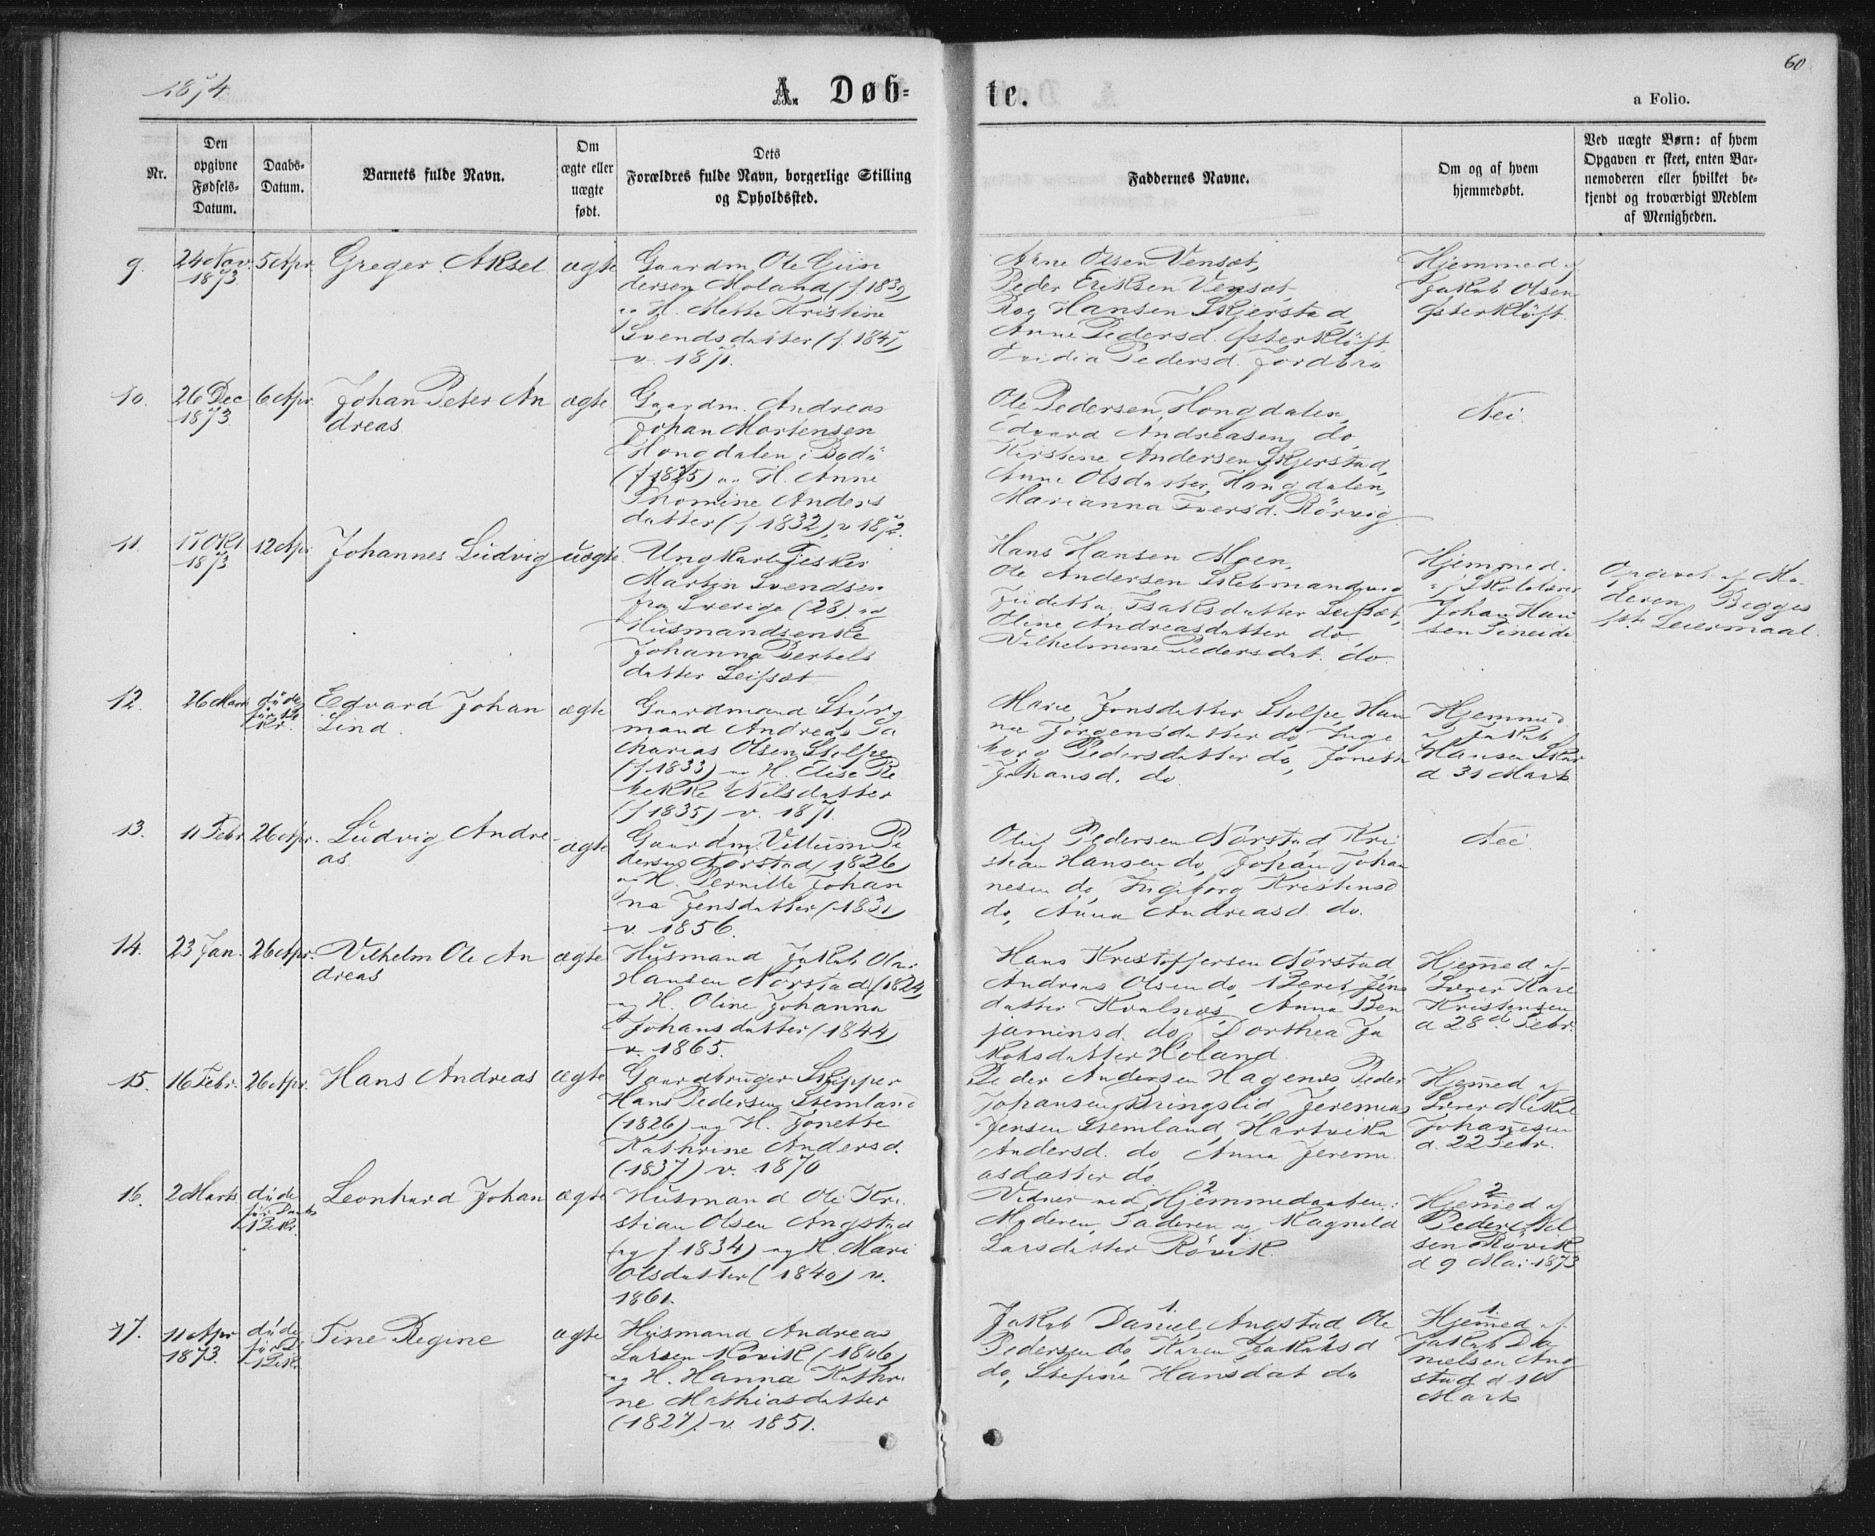 1874
A. Døb-
te.
60
a Folio.
Nr.
Den
opgivne
Fødsels-
Datum.
Daabs-
Datum.
Barnets fulde Navn.
Om
ægte eller
uægte
født.
Dets
Forældres fulde Navn, borgerlige Stilling
og Opholdssted.
Faddernes Navne.
Om og af hvem
hjemmedøbt.
Ved uægte Børn: af hvem
Opgaven er skeet, enten Bar-
nemoderen eller hvilket be-
kjendt og troværdigt Medlem
af Menigheden.
9.
24 Nov.
1873
5 Apr.
Greger Aksel
ægte
Gaardm. Ole Gun
dersen Moland (f 1832)
og H. Mette Kristine
Svendsdatter (f. 1841)
v. 1871.
Arne Olsen Vensæt,
Peder Eriksen Vensæt,
Roo Hansen Skjerstad,
Anne Pedersd. Østerkløft
Pedersd. Jordbro
Hjemmed. af
Jakob Olsen
Østerkløft.
10.
26 Dec
1873
6 Apr.
Johan Peter An
dreas
ægte
Gaardm. Andreas
Johan Mortensen
Hongdalen i Bodø
(f 1825) og H. Anne
Thomine Anders
datter (f 1832) v 1872.
Ole Pedersen Hongdalen,
Edvard Andreasen do,
Kirstine Andersen Skjerstad,
Anne Olsdatter, Hongdalen,
Marianna Iversd. Rörvig
Nei.
11.
17 Okt
1873
12 Apr
Johannes Ludvig
uægte
Ungkarl Fisker
Martin Svendsen
fra Sverige (28) og
Husmandsenke
Johanna Bertels
datter Leifsæt
Hans Hansen Moen,
Ole Andersen Skebmandvig
Juditta Isaksdatter Leifsæt,
Oline Andreasdatter do,
Vilhelmine Pedersdat. do.
Hjemmed.
af Skolelærer
Johan Han
sen Fineide
Opgivet af Mo
deren. Begges
1ste Leiermaal.
12.
26 Marts
døde
før til
Kr.
Edvard Johan
Lind.
ægte
Gaardmand Styr
mand Andreas Za
charias Olsen Stolpe
(f. 1833) og H. Elise Re
bekke Nilsdatter
(f 1835) v. 1871.
Marie Jonsdatter Stolpe, Han
na Jörgensdatter do, Inge
borg Pedersdatter do, Jonetta
Johansd. do
Hjemmed.
af Jakob
Hansen Skar
d 31 Marts
13.
11 Febr.
26 Apr.
Ludvig Andre
as
ægte
Gaardm. Villum Pe
dersen Nörstad (1826)
og H. Pernille Johan
na Jensdatter (1831)
v. 1856.
Oluf Pedersen Nörstad Kri
stian Hansen do, Johan Johan
nesen do, Ingeborg Kristensd
do, Anna Andreasd do.
Nei.
14.
23 Jan.
26 Apr.
Vilhelm Ole An
dreas
ægte
Husmand Jakob Olai
Hansen Nörstad (1824)
og H. Oline Johanna
Johansdatter (1844)
v. 1865.
Hans Kristoffersen Nörstad
Andreas Olsen do, Beret Jens
datter Kvalnæs, Anna Ben
jaminsd. do, Dorthea Ja
kobsdatter Höland.
Hjemed af
Lærer Karl
Kristensen
d 28de Febr.
15.
16 Febr.
26 Apr.
Hans Andreas
ægte
Gaardbruger Skipper
Hans Pedersen Stemland
(1826) og H. Jonette
Kathrine Andersd.
(1837) v. 1870
Peder Andersen Hagenæs Peder
Johansen Bringslid, Jeremias
Jensen Stemland, Hartvika
Andersd. do, Anna Jeremi
asdatter do.
Hjemed af
Lærer Mikal
Johannesen
d. 22 Febr.
16.
2 Marts
døde
før Daab
i Kr.
Leonhard Johan
ægte
Husmand Ole Kri
stian Olsen Angstad
(f 1834) og H. Mari
Olsdatter (1840) v.
1861.
Vidner ved Hjemmedaaben:
Moderen, Faderen og Magnild
Larsdatter Røvik
Hjemed af
Peder Nil
sen Røvik
d 9 Mai 1873
17.
11 Apr
1873.
døde
før D.
i Kr.
Tine Regine
ægte
Husmand Andreas
Larsen Røvik (1806)
og H. Hanna Kathri
ne Mathiasdatter
(1827) v. 1851.
Jakob Daniel. Angstad Ole
Pedersen do, Karen Jakobsd
do, Stefine Hansdat do
Hjemed af
Jakob Da
nielsen Ang
stad d 10
Marts